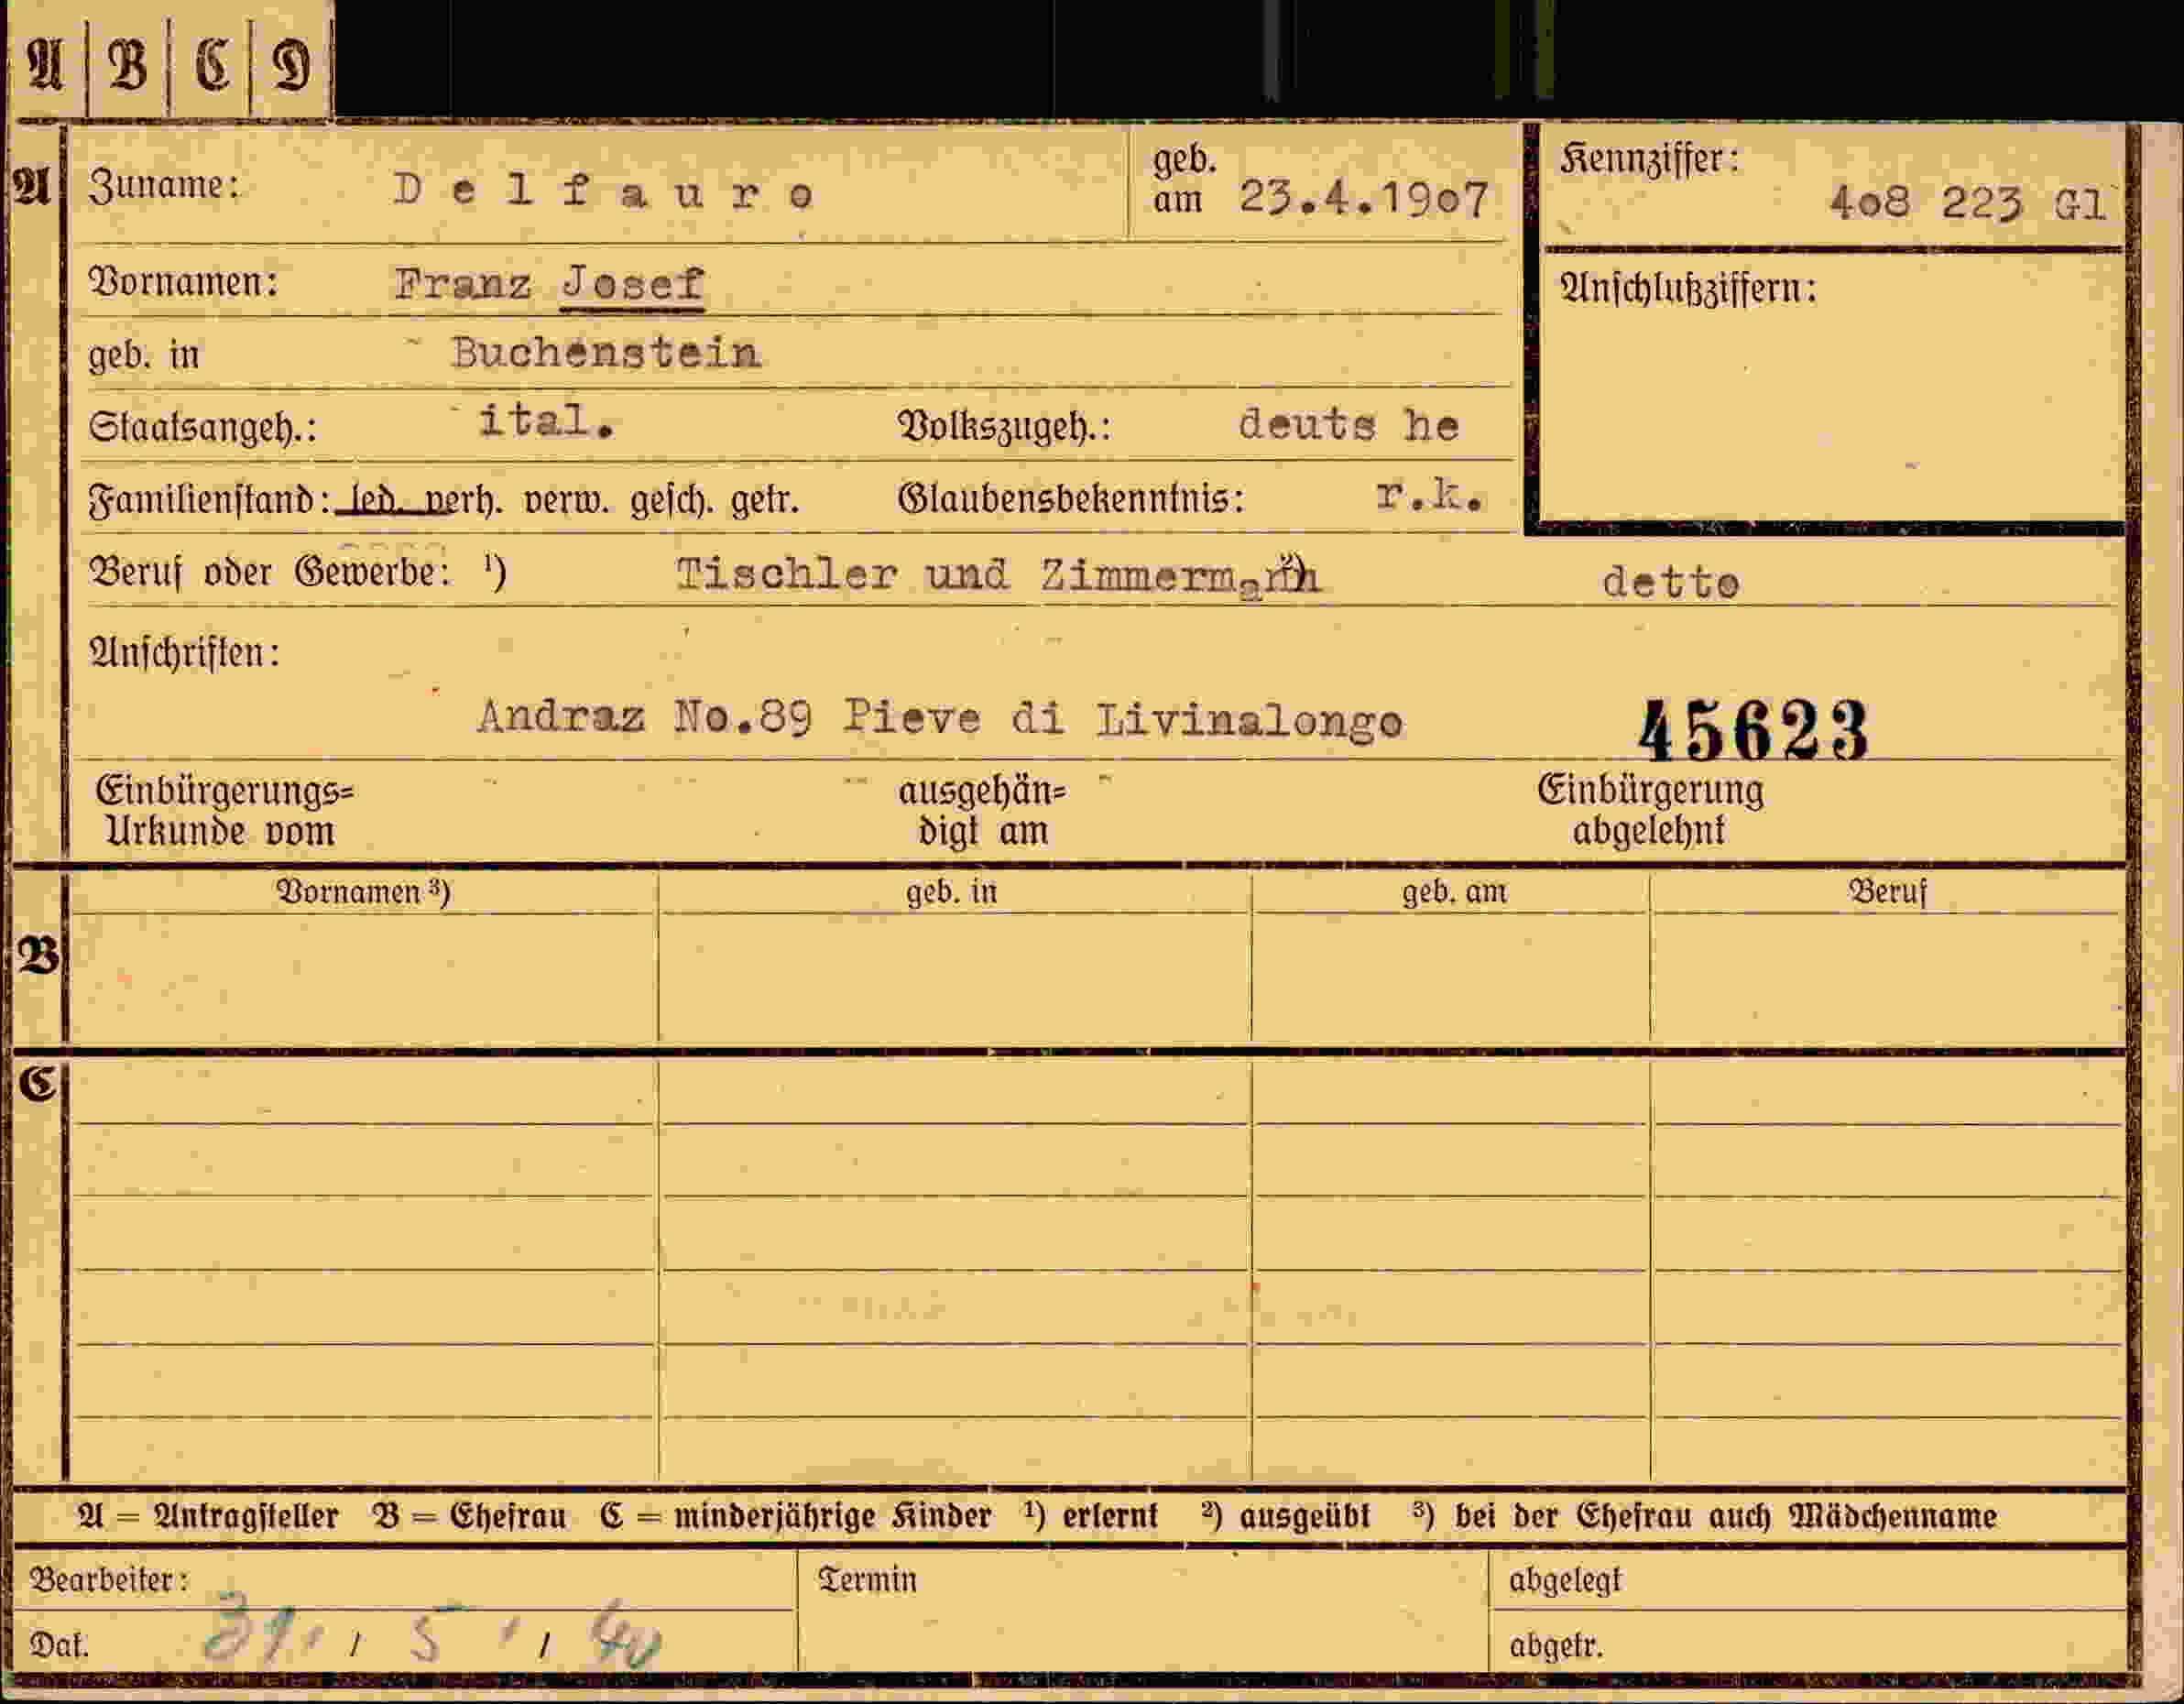 A B C D
A Zuname: Delfauro geb. am 23.4.1907 Kennziffer: 408 223 Gl
Vornamen: Franz Josef Anschlußziffern:
geb. in Buchenstein
Staatsangeh.: ital. Volkszugeh.: deuts he
Familienstand: led. verh. verw. gesch. getr. Glaubensbekenntnis: r.k.
Beruf oder Gewerbe: ¹) Tischler und Zimmermann ²) detto
Anschriften:
Andraz No.89 Pieve di Livinalongo 45623
Einbürgerungs= ausgehän= Einbürgerung
Urkunde vom digt am abgelehnt
Vornamen ³) geb. in geb. am Beruf
B
C
A = Antragsteller B = Ehefrau C = minderjährige Kinder ¹) erlernt ²) ausgeübt ³) bei der Ehefrau auch Mädchenname
Bearbeiter: Termin abgelegt
Dat. 31. / 5 / 40 abgetr.